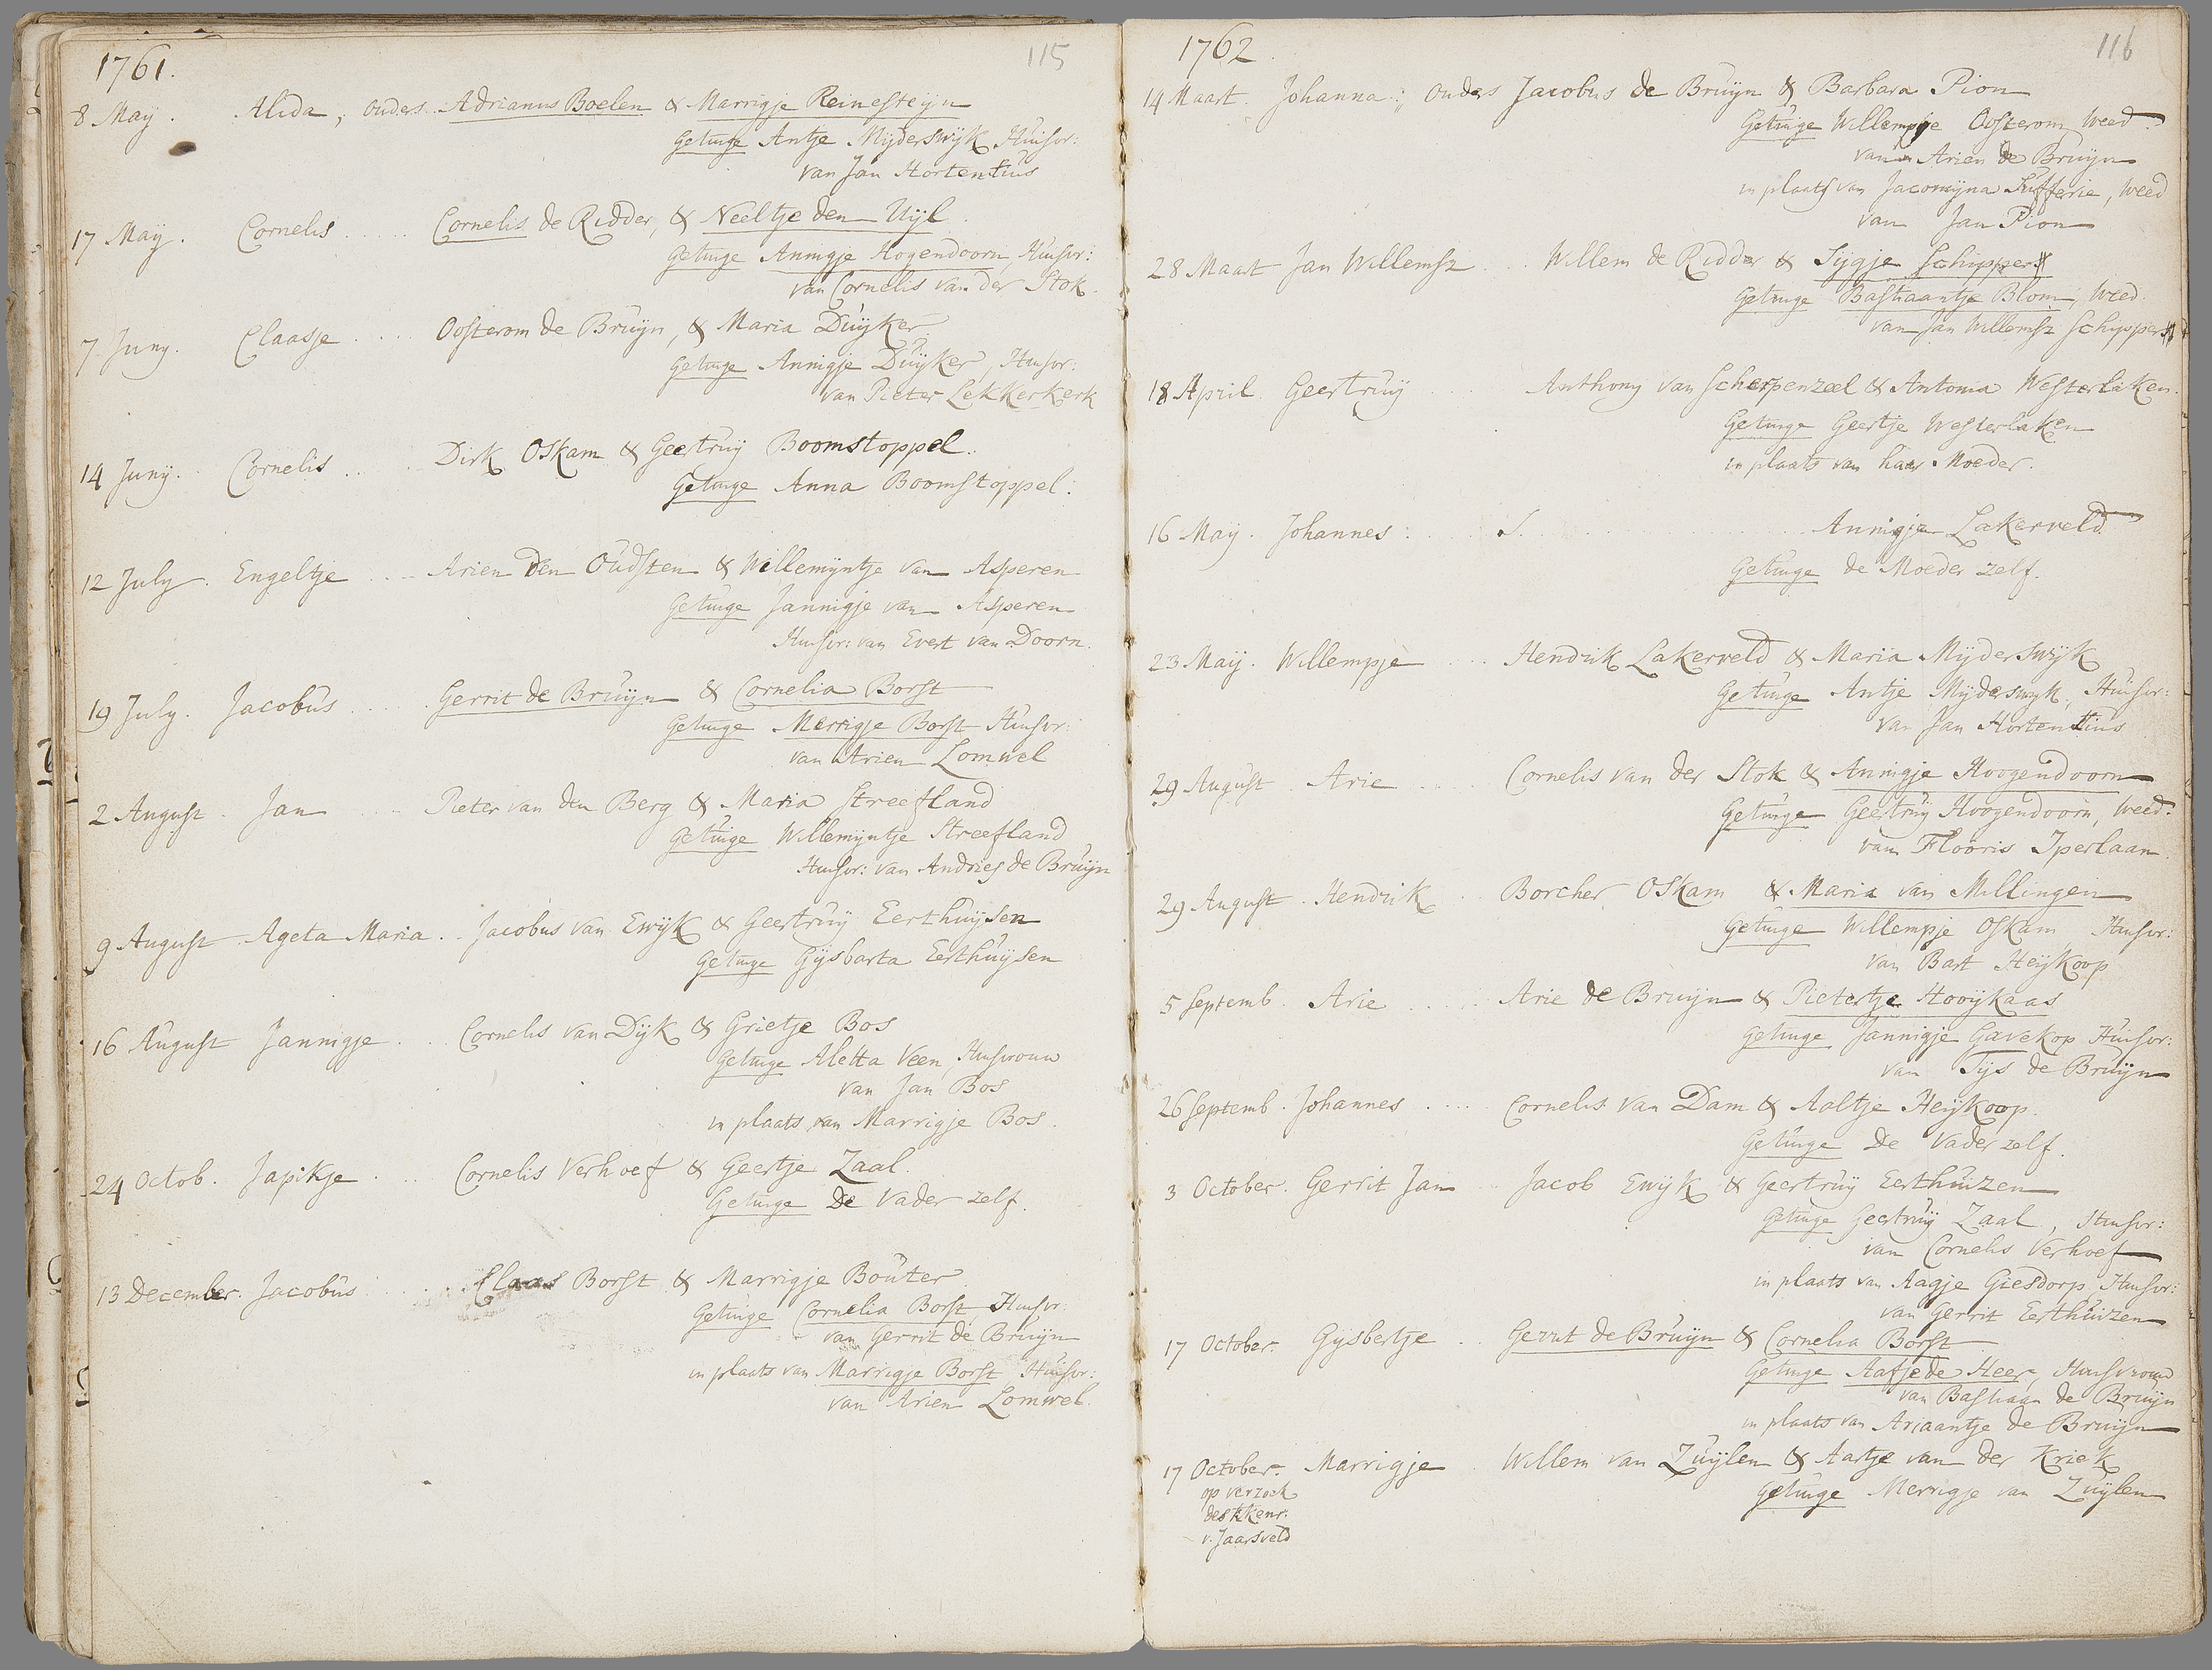 1761.
115
8 May. Alida, ouders Adrianus Boelen & Marrigje Reinesteijn
Getuige Antje Mijderswijk, Huisvr:
van Jan Hortentius
17 Maij. Cornelis ..... Cornelis de Ridder, & Neeltje den Uijl.
Getuige Annigje Hogendoorn, Huisvr:
van Cornelis van der Stok.
7 Juny. Claasje ..... Oosterom de Bruijn, & Maria Duijker
Getuige Annigje Duijker, Huisvr:
van Pieter Lekkerkerk
14 Junij. Cornelis .... Dirk Oskam & Geertruij Boomstoppel.
Getuige Anna Boomstoppel.
12 July. Engeltje .... Arien Den Oudsten & Willemijntje van Asperen
Getuige Jannigje van Asperen
Huisvr: van Evert van Doorn.
19 July. Jacobus ..... Gerrit de Bruijn & Cornelia Borst
Getuige Merrigje Borst Huisvr:
van Arien Lomwel
2 August. Jan .... Pieter van den Berg & Maria Streefland
Getuige Willemijntje Streefland
Huisvr: van Andries de Bruijn
9 August Ageta Maria. .. Jacobus van Ewijk & Geertruij Eerthuijsen
Getuige Gijsbarta Eerthuijsen
16 August Jannigje ... Cornelis van Dijk & Grietje Bos
Getuige Aletta Veen, Huisvrouw
van Jan Bos
in plaats van Marrigje Bos.
24 Octob. Japikje .... Cornelis Verhoef & Geertje Zaal.
Getuige De Vader zelf.
13 December. Jacobus ..... Claas Borst & Marrigje Bouter
Getuige Cornelia Borst Huisvr:
van Gerrit de Bruijn
in plaats van Marrigje Borst, Huisvr:
van Arien Lomwel.
1762.
116
14 Maart. Johanna; ouders Jacobus de Bruijn & Barbara Pion
Getuige Willempje Oosterom, Weed:
van Arien de Bruijn
in plaats van Jacomijna Tufferie, Weed
van Jan Pion
28 Maart Jan Willemsz .... Willem de Ridder & Sijgje Schipper
Getuige Bastiaantje Blom, Weed.
van Jan Willemsz Schipper
18 April. Geertruij .... Anthony van Scherpenzeel & Antonia Westerlaken.
Getuige Geertje Westerlaken
in plaats van haar Moeder.
16 May. Johannes: .... Annigje Lakerveld
Getuige de Moeder zelf.
23 Maij. Willempje .... Hendrik Lakerveld & Maria Mijderswijk
Getuige Antje Mijderswijk, Huisvr:
van Jan Hortentius
29 August. Arie ..... Cornelis van der Stok & Annigje Hoogendoorn
Getuige Geertruy Hoogendoorn, Weed:
van Flooris Iperlaan.
29 August. Hendrik .. Borcher Oskam & Maria van Millingen
Getuige Willempje Oskam Huisvr:
van Bart Heijkoop
5 Septemb. Arie ..... Arie de Bruijn & Pietertje Hooijkaas
Getuige Jannigje Gavekop Huisvr:
van Tijs de Bruijn
26 Septemb. Johannes ..... Cornelis van Dam & Aaltje Heijkoop.
Getuige De Vader zelf.
3 October. Gerrit Jan .. Jacob Ewijk & Geertruij Eerthuizen
Getuige Geertruij Zaal, Huisvr:
van Cornelis Verhoef
in plaats van Aagje Giesdorp, Huisvr:
van Gerrit Eerthuizen
17 October. Gijsbertje .. Gerrit de Bruijn & Cornelia Borst
Getuige Aafje de Heer, Huisvrouw
van Bastiaan de Bruijn
in plaats van Ariaantje de Bruijn
17 October. Marrigje . Willem van Zuijlen & Aartje van der Kriek
op verzoek
Getuige Merrigje van Zuijlen
des kkenr:
v. Jaarsveld